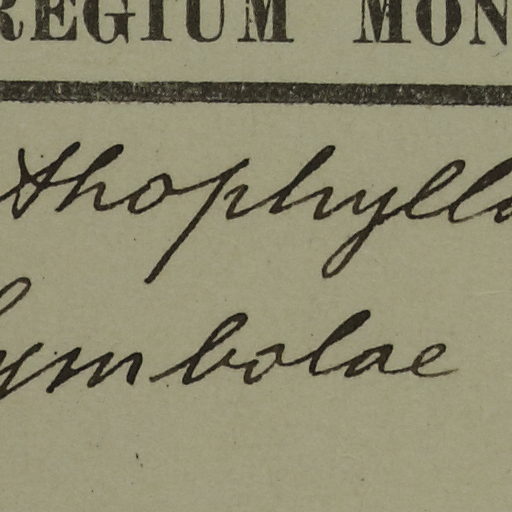 REGIUM MON
thophylla
ymbolae